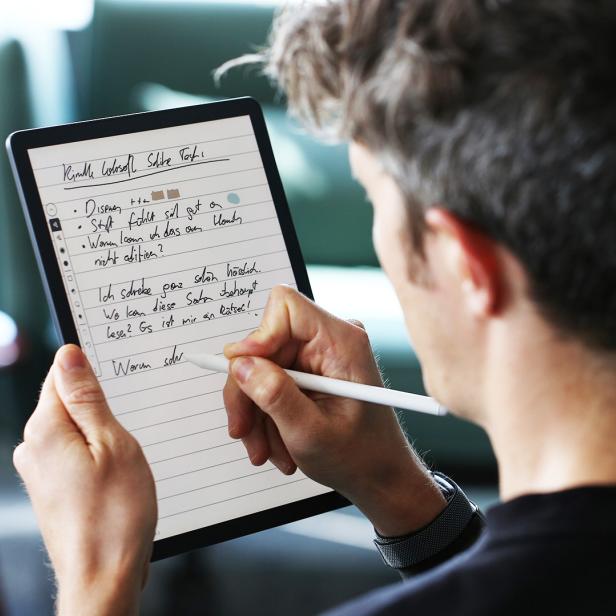 Kindle Colorsoft Scribe Test:
• Display +++
• Stift fühlt sich gut an
• Warum kann ich das am Handy
nicht editieren?
Ich schreibe ganz schön hässlich.
Wie kann diese Sachen überhaupt
lesen? Es ist mir ein Rätsel!
Warum